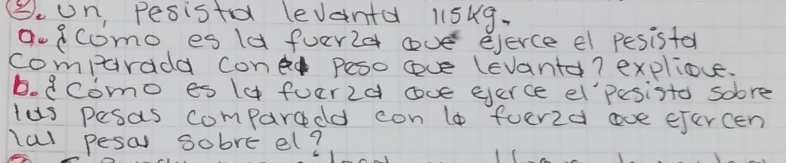 ②. un, pesista levanta 115kg.
a. ¿cómo es la fuerza que ejerce el pesista
comparada con el peso que levanta? explique.
b. ¿cómo es la fuerza que ejerce el pesista sobre
las pesas comparada con la fuerza que ejercen
las pesas sobre el?